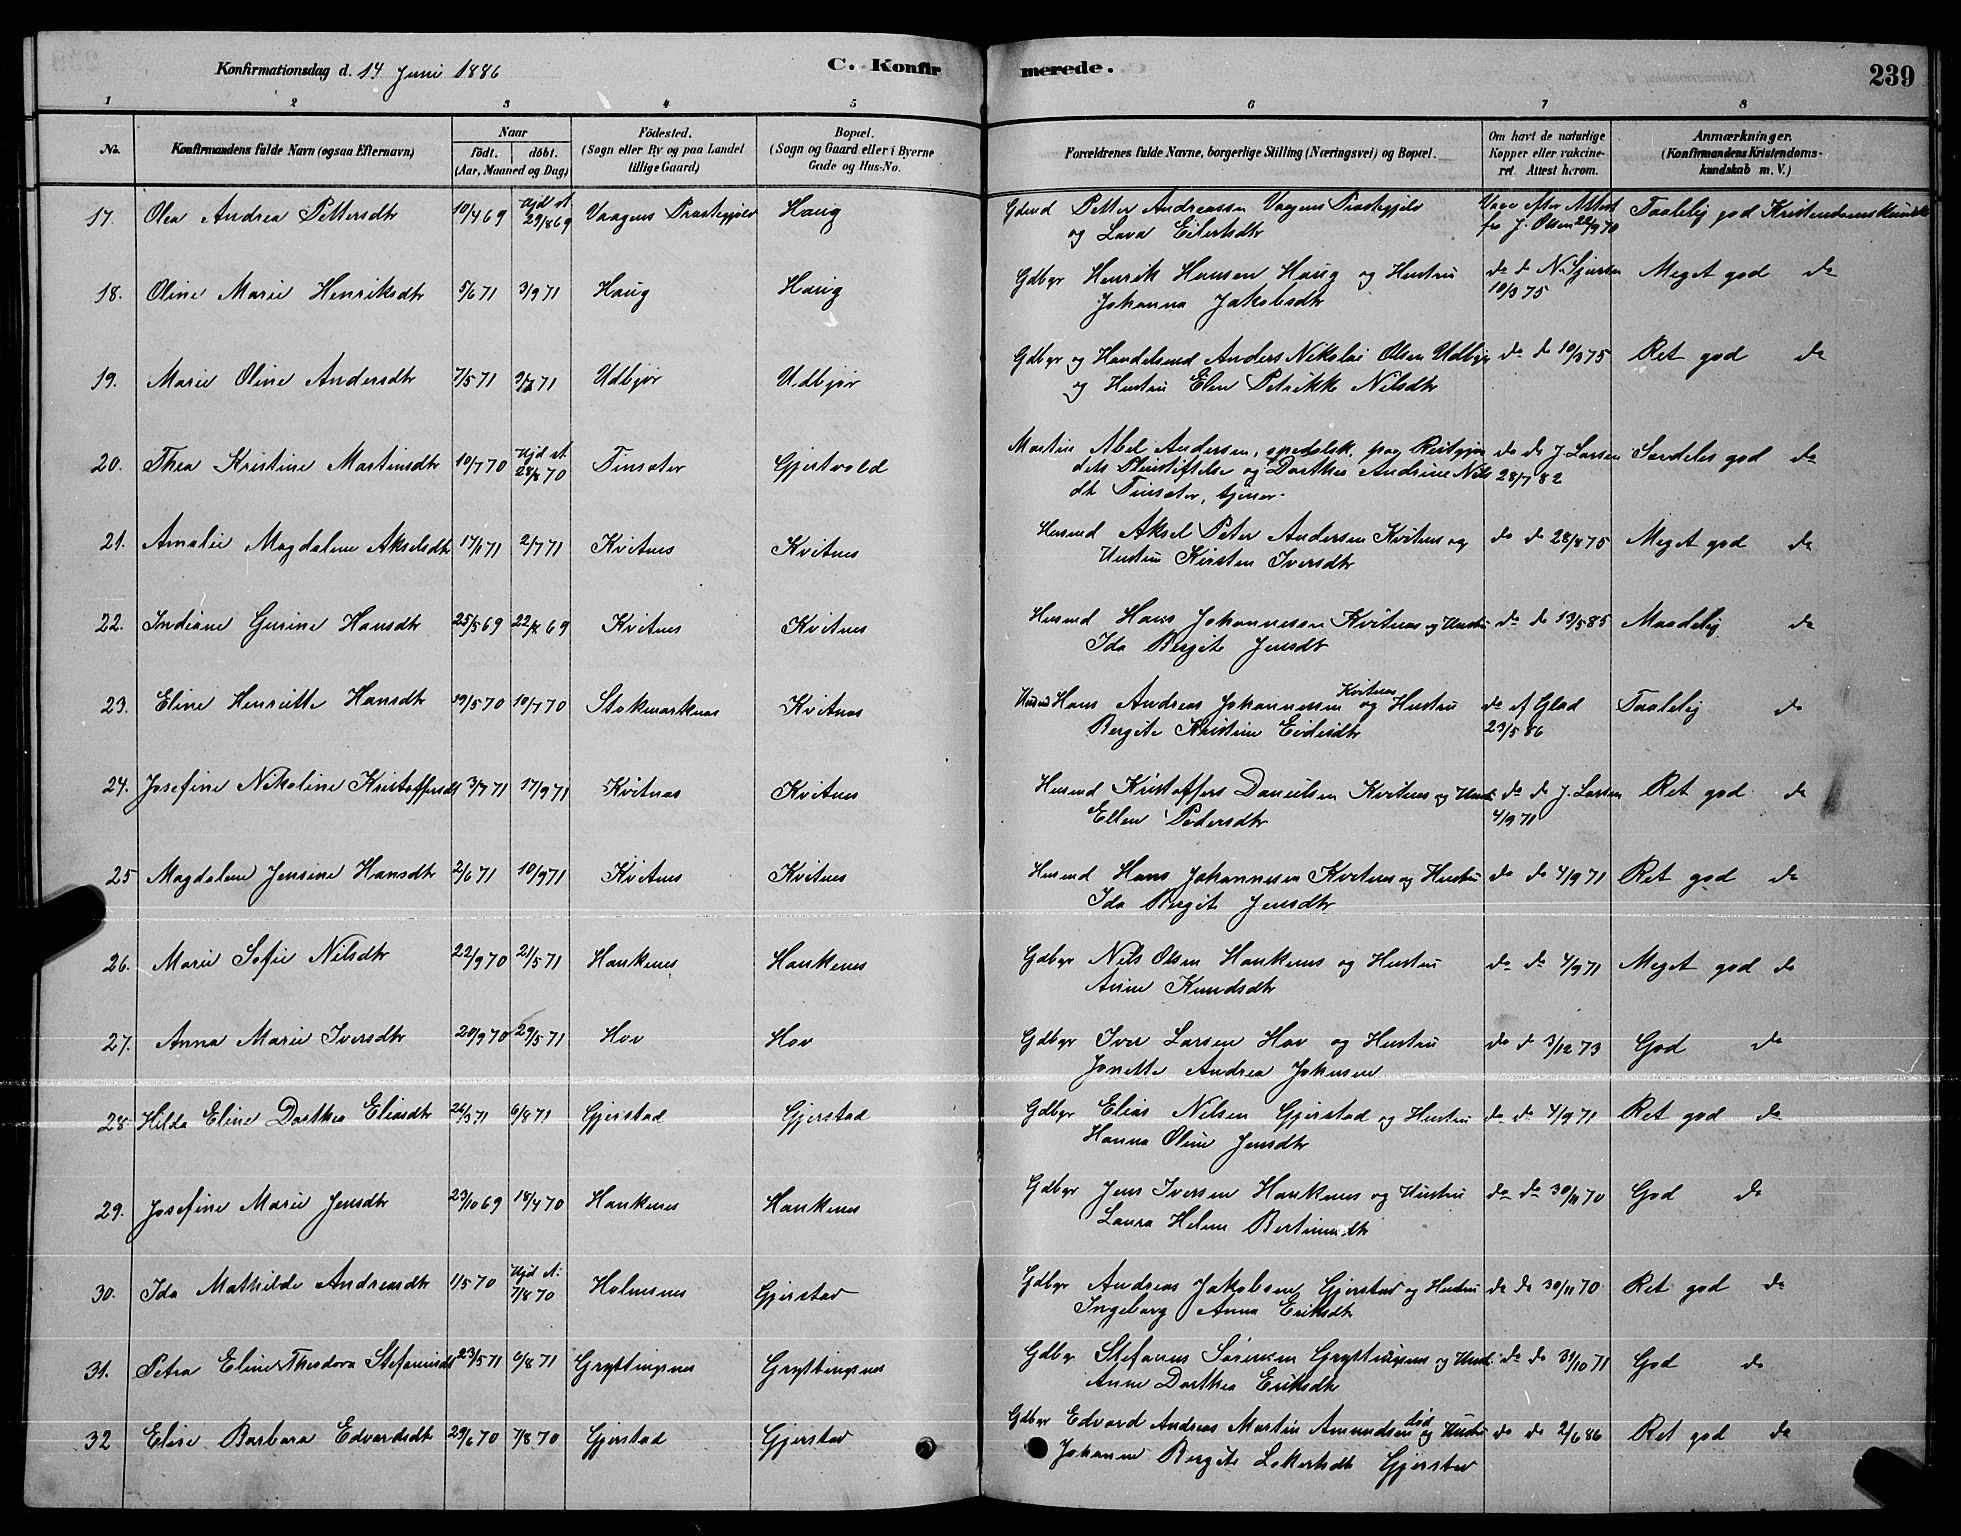 Konfirmationsdag d. 14 Juni 1886
C. Konfirmerede.
239
1 2 3 4 5 6 7 8
No. Konfirmandens fulde Navn (ogsaa Efternavn) Naar født. døbt. (Aar, Maaned og Dag) Födested. (Sogn eller By og paa Landet tillige Gaard) Bopæl. (Sogn og Gaard eller i Byerne Gade og Hus-No. Forældrenes fulde Navne, borgerlige Stilling (Næringsvei) og Bopæl. Om havt de naturlige Kopper eller vakcineret. Attest herom. Anmærkninger. (Konfirmandens Kristendomskundskab m. V.)
17. Olea Andrea Pettersdtr 10/4 69 Hjd st 29/8 69 Vaagens Prestegjeld Haug Gdmd Petter Andreassen Vaagens Prestegjeld Vacc efter Attest Taalelig god Kristendomskundsk
og Lava Eilertsdtr fra J. Olsen 22/9 70
18. Oline Marie Henriksdtr 5/6 71 3/9 71 Haug Haug Gdbgr Henrik Hansen Haug og Hustru do do N. Sjursen Meget god do
Johanna Jakobsdtr 10/3 75
19. Marie Oline Andersdtr 7/5 71 9/7 71 Udbjør Udbjør Gdbgr og Handelsmd Anders Nikolai Olsen Udbjør do do 10/3 75 Ret god do
og Hustru Elen Petrikke Nilsdtr
20. Thea Kristine Martinsdtr 10/7 70 Hjd st 28/8 70 Tinsæter Gjertvold Martin Abel Andersen, spedalsk paa Reitgjær do do J. Larsen Særdeles god do
dets Pleiestiftelse og Dorthea Andrine Nils 28/7 82
dtr Tinsæter, tjener
21. Amalie Magdalene Akselsdtr 17/1 71 2/7 71 Kvitnes Kvitnes Husmd Aksel Peter Andersen Kvitnes og do do 28/8 75 Meget god do
Hustru Kirsten Iversdtr
22. Indiane Gurine Hansdtr 25/5 69 22/8 69 Kvitnes Kvitnes Husmd Hans Johannessen Kvitnes og Hustru do do 13/5 85 Maadelig do
Ida Bergite Jensdtr
23. Eline Henriette Hansdtr 19/5 70 10/7 70 Stokmarknes Kvitnes Husmd Hans Andreas Johannessen Kvitnes og Hustru do af Glad Taalelig do
Bergite Kristine Eidisdtr 23/5 86
24. Josefine Nikoline Kristoffersdt 3/7 71 17/9 71 Kvitnes Kvitnes Husmd Kristoffers Danielsen Kvitnes og Hust. do do J. Larsen Ret god do
Ellen Pedersdtr 4/9 71
25 Magdalene Jensine Hansdtr 2/6 71 10/9 71 Kvitnes Kvitnes Husmd Hans Johannesen Kvitnes og Hustru do do 4/9 71 Ret god do
Ida Bergite Jensdtr
26. Marie Sofie Nilsdtr 22/9 70 21/5 71 Haukenes Haukenes Gdbgr Nils Olsen Haukenes og Hustru do do 4/9 71 Meget god do
Anne Knudsdtr
27. Anna Marie Iversdtr 20/9 70 29/5 71 Hov Hov Gdbgr Iver Larsen Hov og Hustru do do 3/12 73 God do
Jonette Andrea Johnsen
28 Hilda Eline Dorthea Eliasdtr 26/3 71 6/8 71 Gjerstad Gjerstad Gdbgr Elias Nilsen Gjerstad og Hustru do do 4/9 71 Ret god do
Hanna Oline Jensdtr
29. Josefine Marie Jensdtr 23/10 69 18/4 70 Haukenes Haukenes Gdbgr Jens Iversen Haukenes og Hustru do do 30/11 70 God do
Laura Helene Bertinusdtr
30. Ida Mathilde Andreasdtr 1/5 70 Hjd st. 7/8 70 Holmsnes Gjerstad Gdbgr Andreas Jakobsen Gjerstad og Hustru do do 30/11 70 Ret god do
Ingeborg Anna Eriksdtr
31. Petra Eline Theodora Stefanusdt 23/5 71 6/8 71 Gryttingsnes Gryttingsnes Gdbgr Stefanus Sørensen Gryttingsnes og Hust. do do 31/10 71 God do
Anne Dorthea Eriksdtr
32 Elise Barbara Edvardsdtr 29/6 70 7/8 70 Gjerstad Gjerstad Gdbgr Edvard Andreas Martin Amundsen død og Hustru do do 2/6 86 Ret god do
Johanne Bergite Lokertsdtr Gjerstad